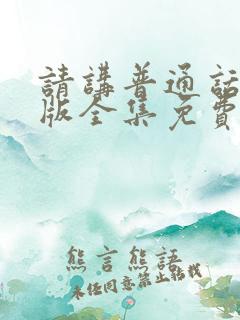 請講普通話
版全集免費
熊言熊語
未经同意禁止转载